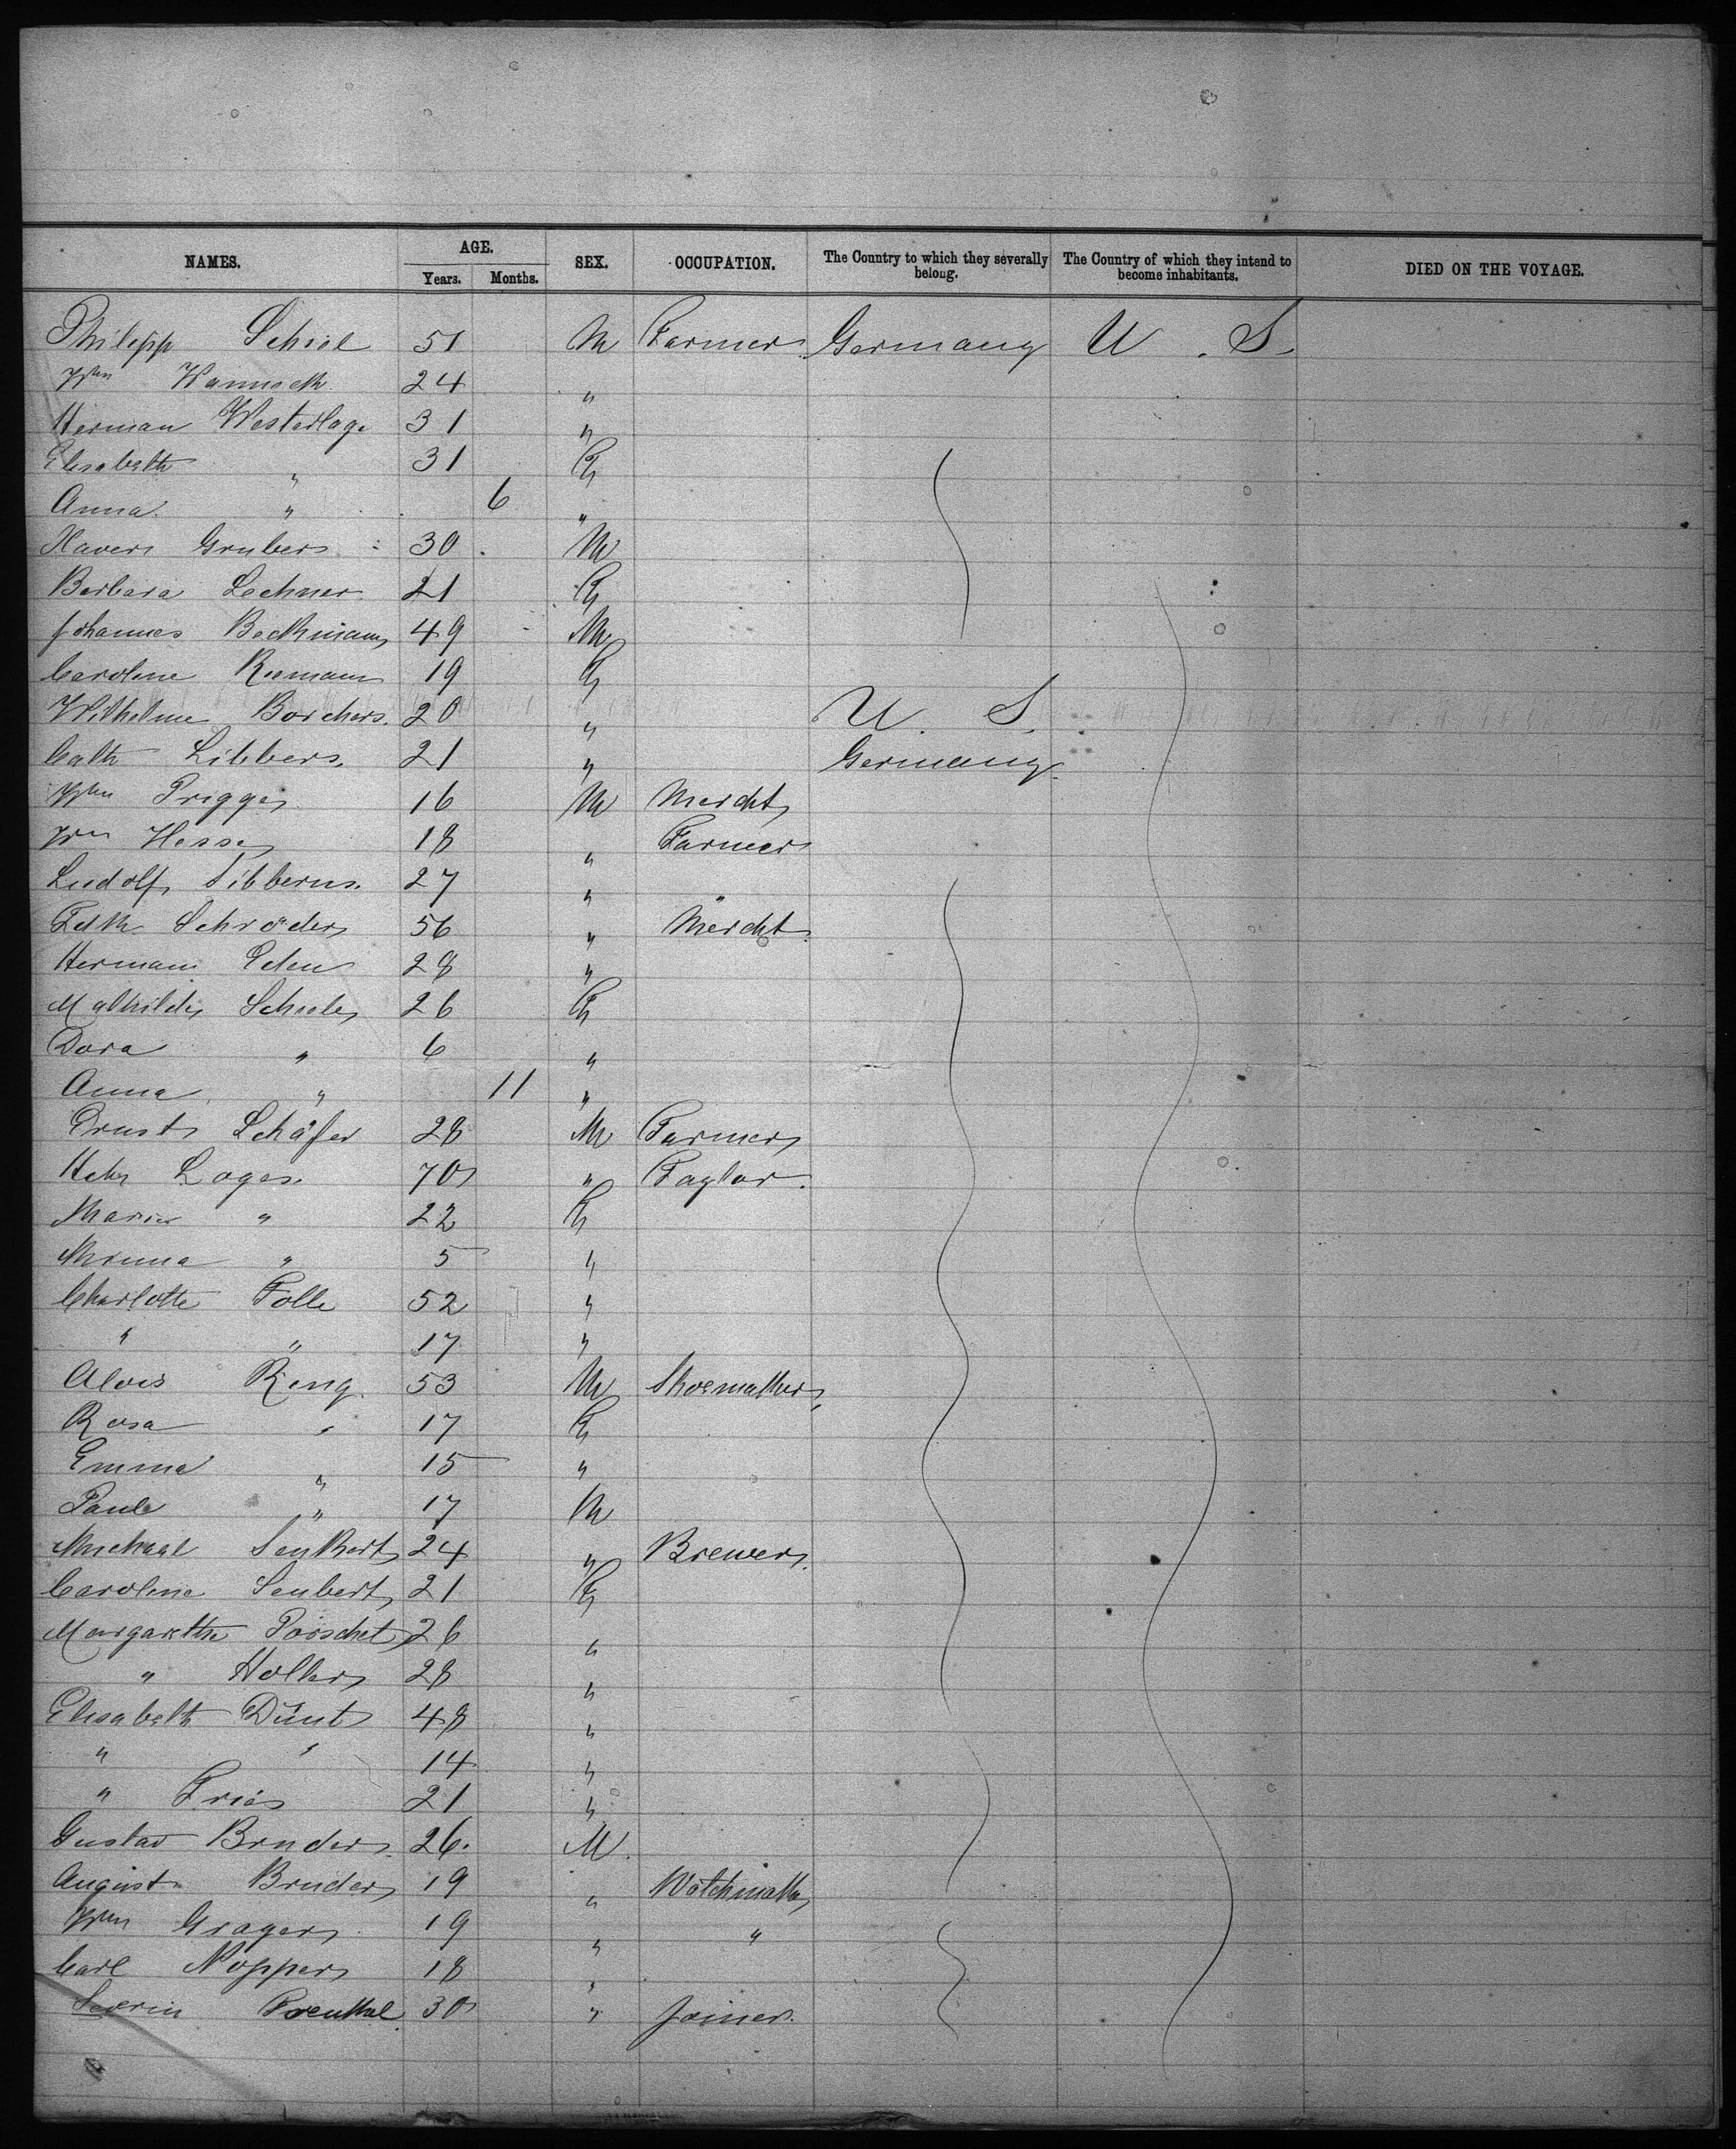 NAMES. AGE. SEX. OCCUPATION. The Country to which they severally belong. The Country of which they intend to become inhabitants. DIED ON THE VOYAGE.
Years. Months.
Philipp Schiel 51 M Farmer Germany U. S.
Wm 24 "
Herman Westerlage 31 "
Elisabeth " 31 F
Anna " 6 "
Xaver Gruber 30 M
Barbara Lechner 21 F
Johannes Beckmann 49 M
Caroline Riemann 19 F
Wilhelmine Borchers 20 " U. S.
Cath Libbers 21 " Germany
Wm Prigge 16 M Mercht
Wm Hesse 18 " Farmer
Ludolf Sibberns 27 " "
Schröder 56 " Mercht
Hermann Eden 28 "
Mathilde Scheele 26 F
Dora " 6 "
Anna " 11 "
Ernst Schäfer 28 M Farmer
Hch Loges 70 " Taylor
Marie " 22 F
Minna " 5 "
Charlotte Tolle 52 "
" " 17 "
Alois Ring 53 M Shoemaker
Rosa " 17 F
Emma " 15 "
Paul " 17 M
Michael 24 " Brewer
Caroline Seubert 21 F
Margarethe Pörschet 26 "
" Holler 28 "
Elisabeth Dünt 48 "
" " 14 "
" Friës 21 "
Gustav Bruder 26. M.
August Bruder 19 " Watchmaker
Wm Grager 19 " "
Carl Nopper 18 "
Severin 30 " Joiner